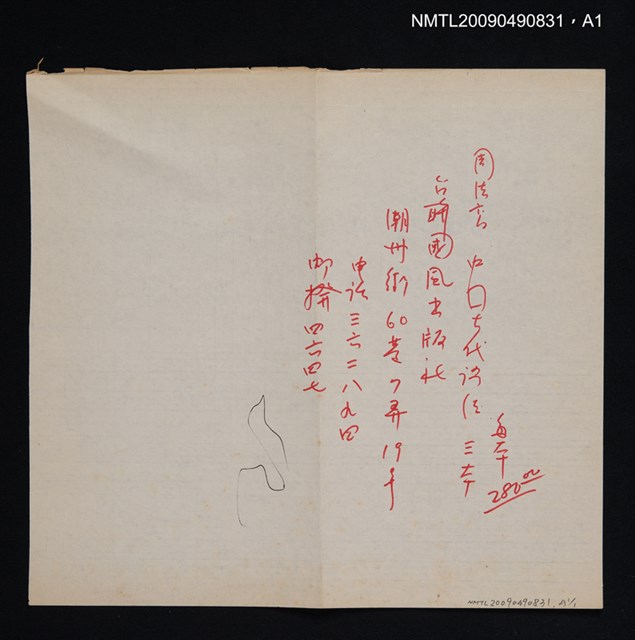 NMTL20090490831，A1
周法高 中囗古代語法 三本
每本
280.00
台灣國風出版社
潮州街60巷7弄19号
电话三六二八九四
郵撥四六四七
NMTL20090490831.a1/1